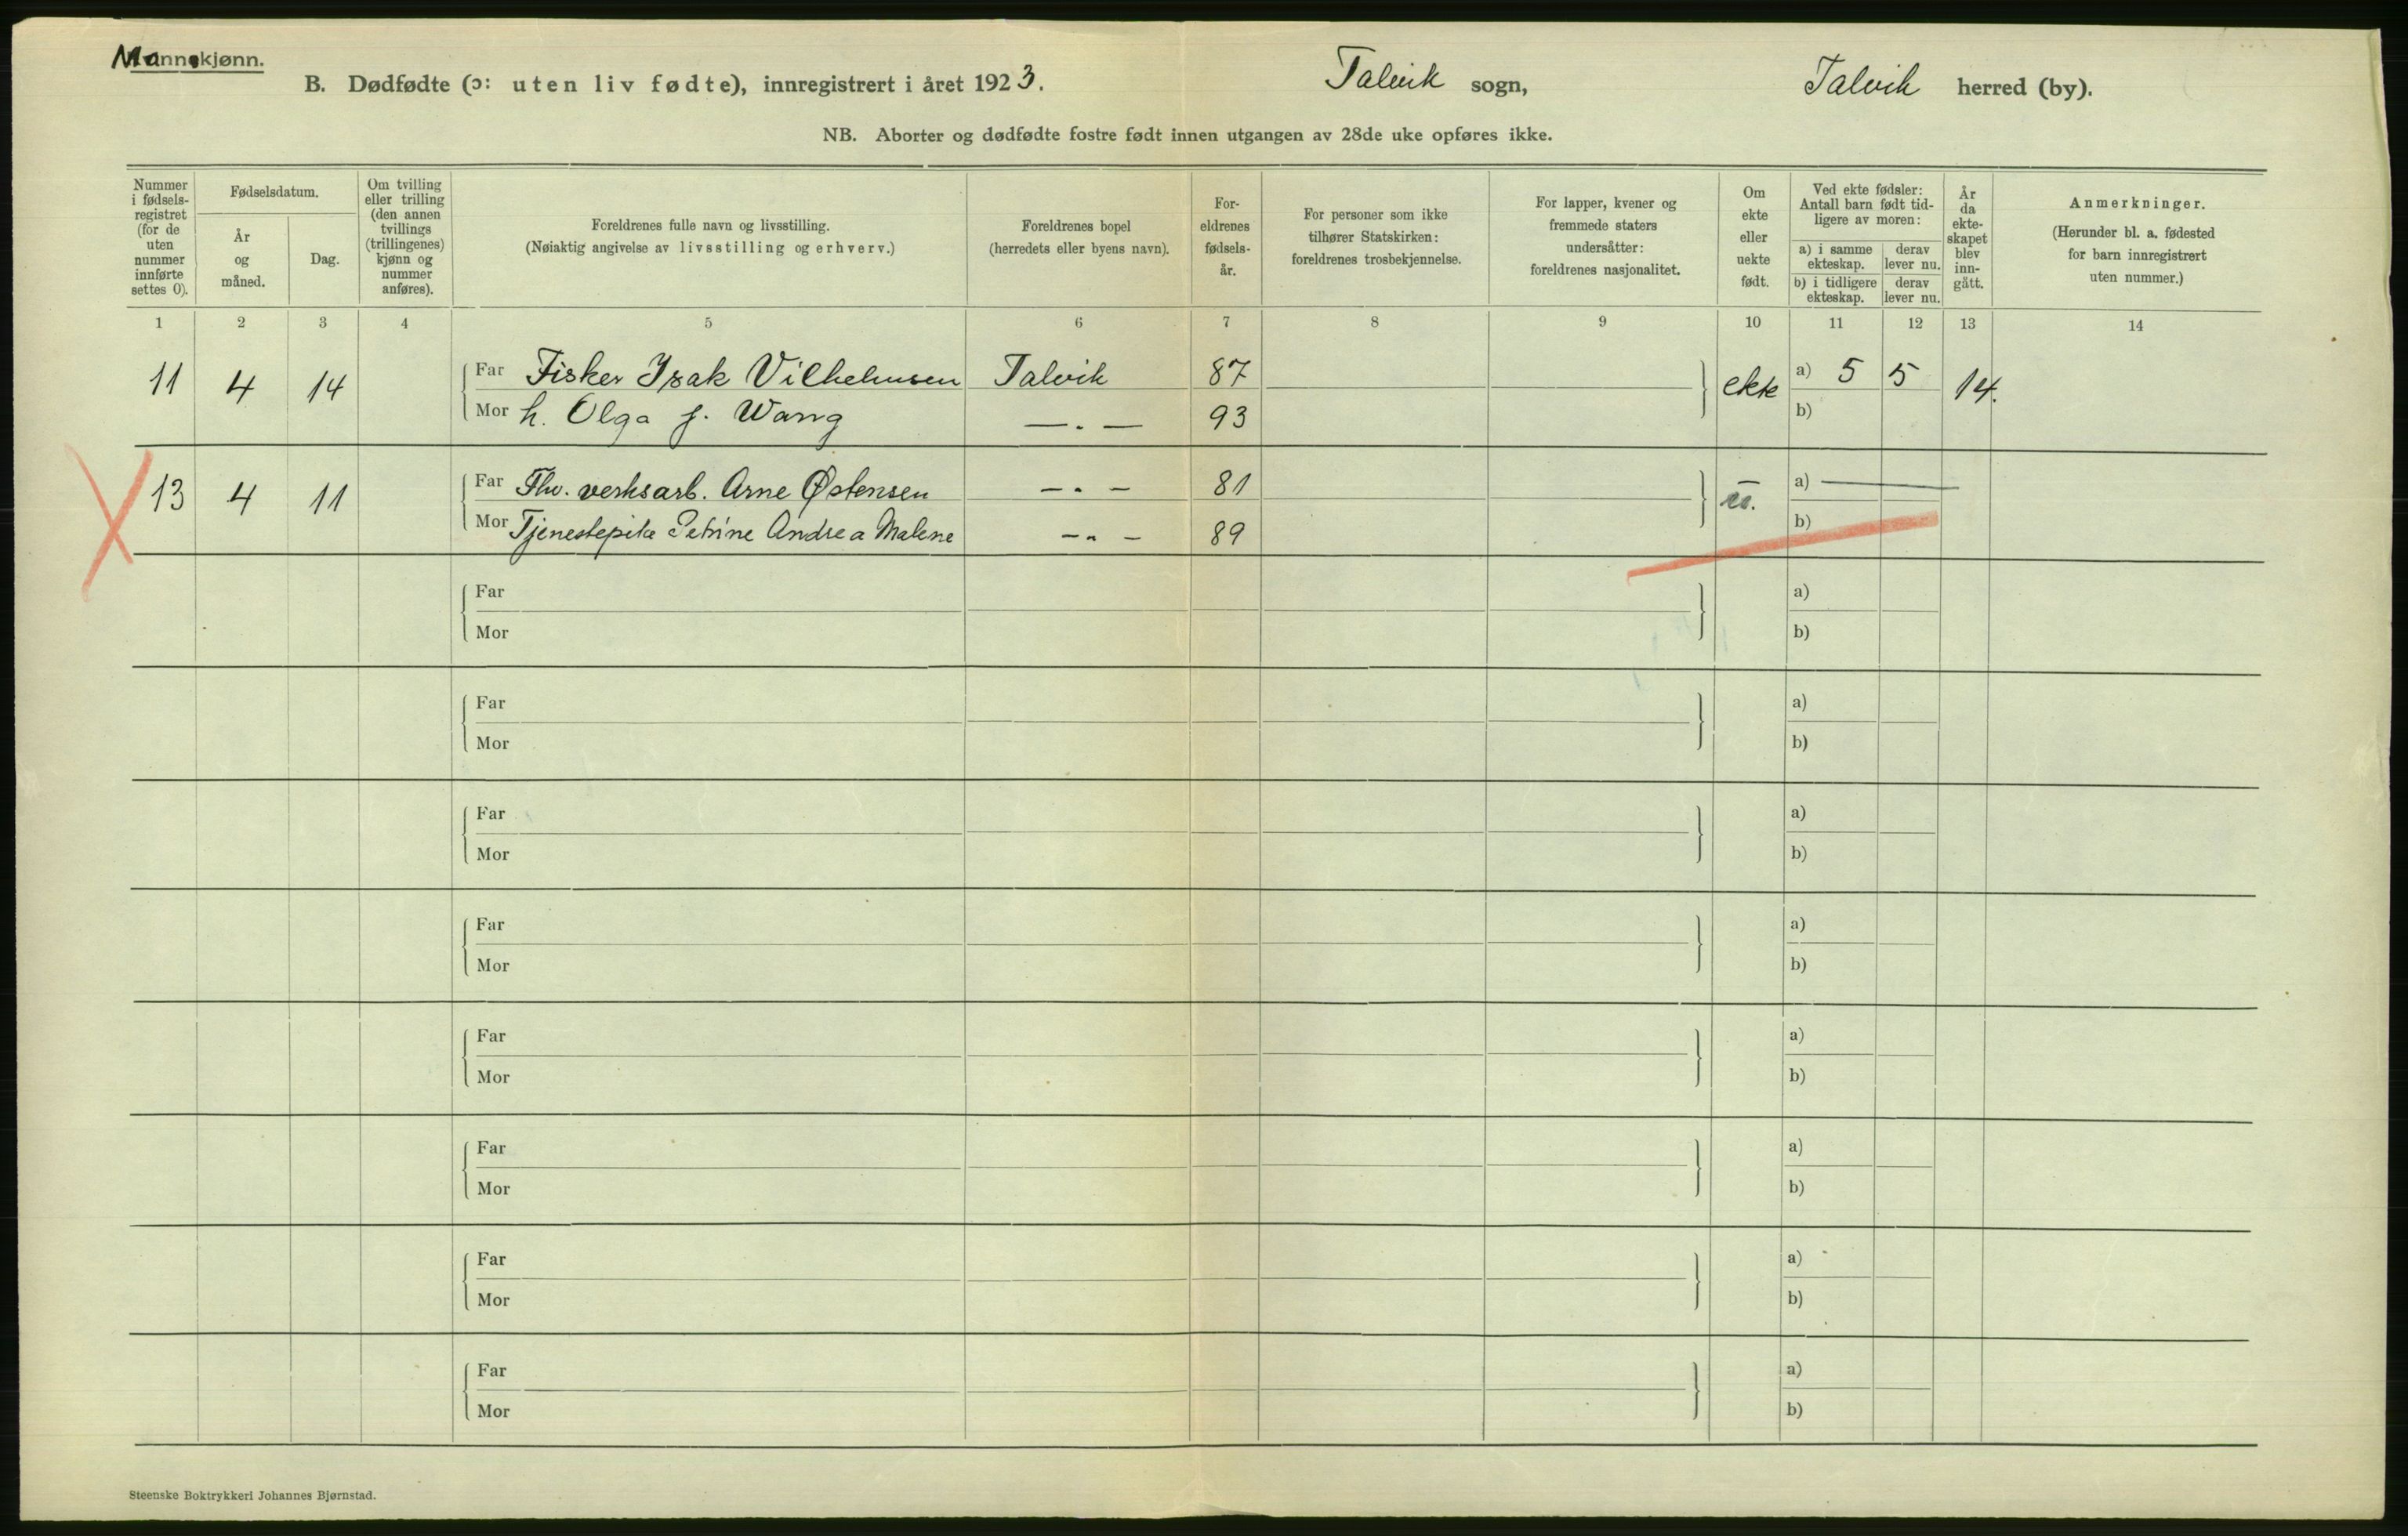 Mannkjønn.
B. Dødfødte (ɔ: uten liv fødte), innregistrert i året 1923. Talvik sogn, Talvik herred (by).
NB. Aborter og dødfødte fostre født innen utgangen av 28de uke opføres ikke.
Nummer i fødsels-registret (for de uten nummer innførte settes 0).
Fødselsdatum.
År og måned.
Dag.
Om tvilling eller trilling (den annen tvillings (trillingenes) kjønn og nummer anføres).
Foreldrenes fulle navn og livsstilling.
(Nøiaktig angivelse av livsstilling og erhverv.)
Foreldrenes bopel
(herredets eller byens navn).
For-eldrenes fødsels-år.
For personer som ikke tilhører Statskirken: foreldrenes trosbekjennelse.
For lapper, kvener og fremmede staters undersåtter: foreldrenes nasjonalitet.
Om ekte eller uekte født.
Ved ekte fødsler: Antall barn født tid-ligere av moren:
a) i samme ekteskap. derav lever nu.
b) i tidligere ekteskap. derav lever nu.
År da ekte-skapet blev inn-gått.
Anmerkninger.
(Herunder bl. a. fødested for barn innregistrert uten nummer.)
1 2 3 4 5 6 7 8 9 10 11 12 13 14
11 4 14 Far Fisker Isak Vilhelmsen Talvik 87 ekte a) 5 5 14.
Mor h. Olga f. Wang —.— 93 b)
13 4 11 Far Flw. verksarb. Arne Østensen —"— 81 a) —
Mor Tjenestepike Petrine Andrea Malene —"— 89 b)
Far a)
Mor b)
Far a)
Mor b)
Far a)
Mor b)
Far a)
Mor b)
Far a)
Mor b)
Far a)
Mor b)
Far a)
Mor b)
Far a)
Mor b)
Steenske Boktrykkeri Johannes Bjørnstad.